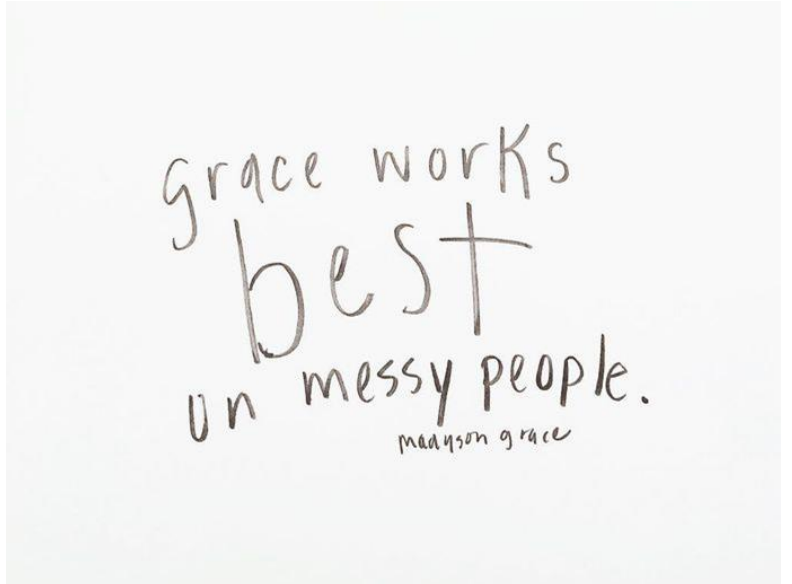 grace works
best
on messy people.
madyson grace